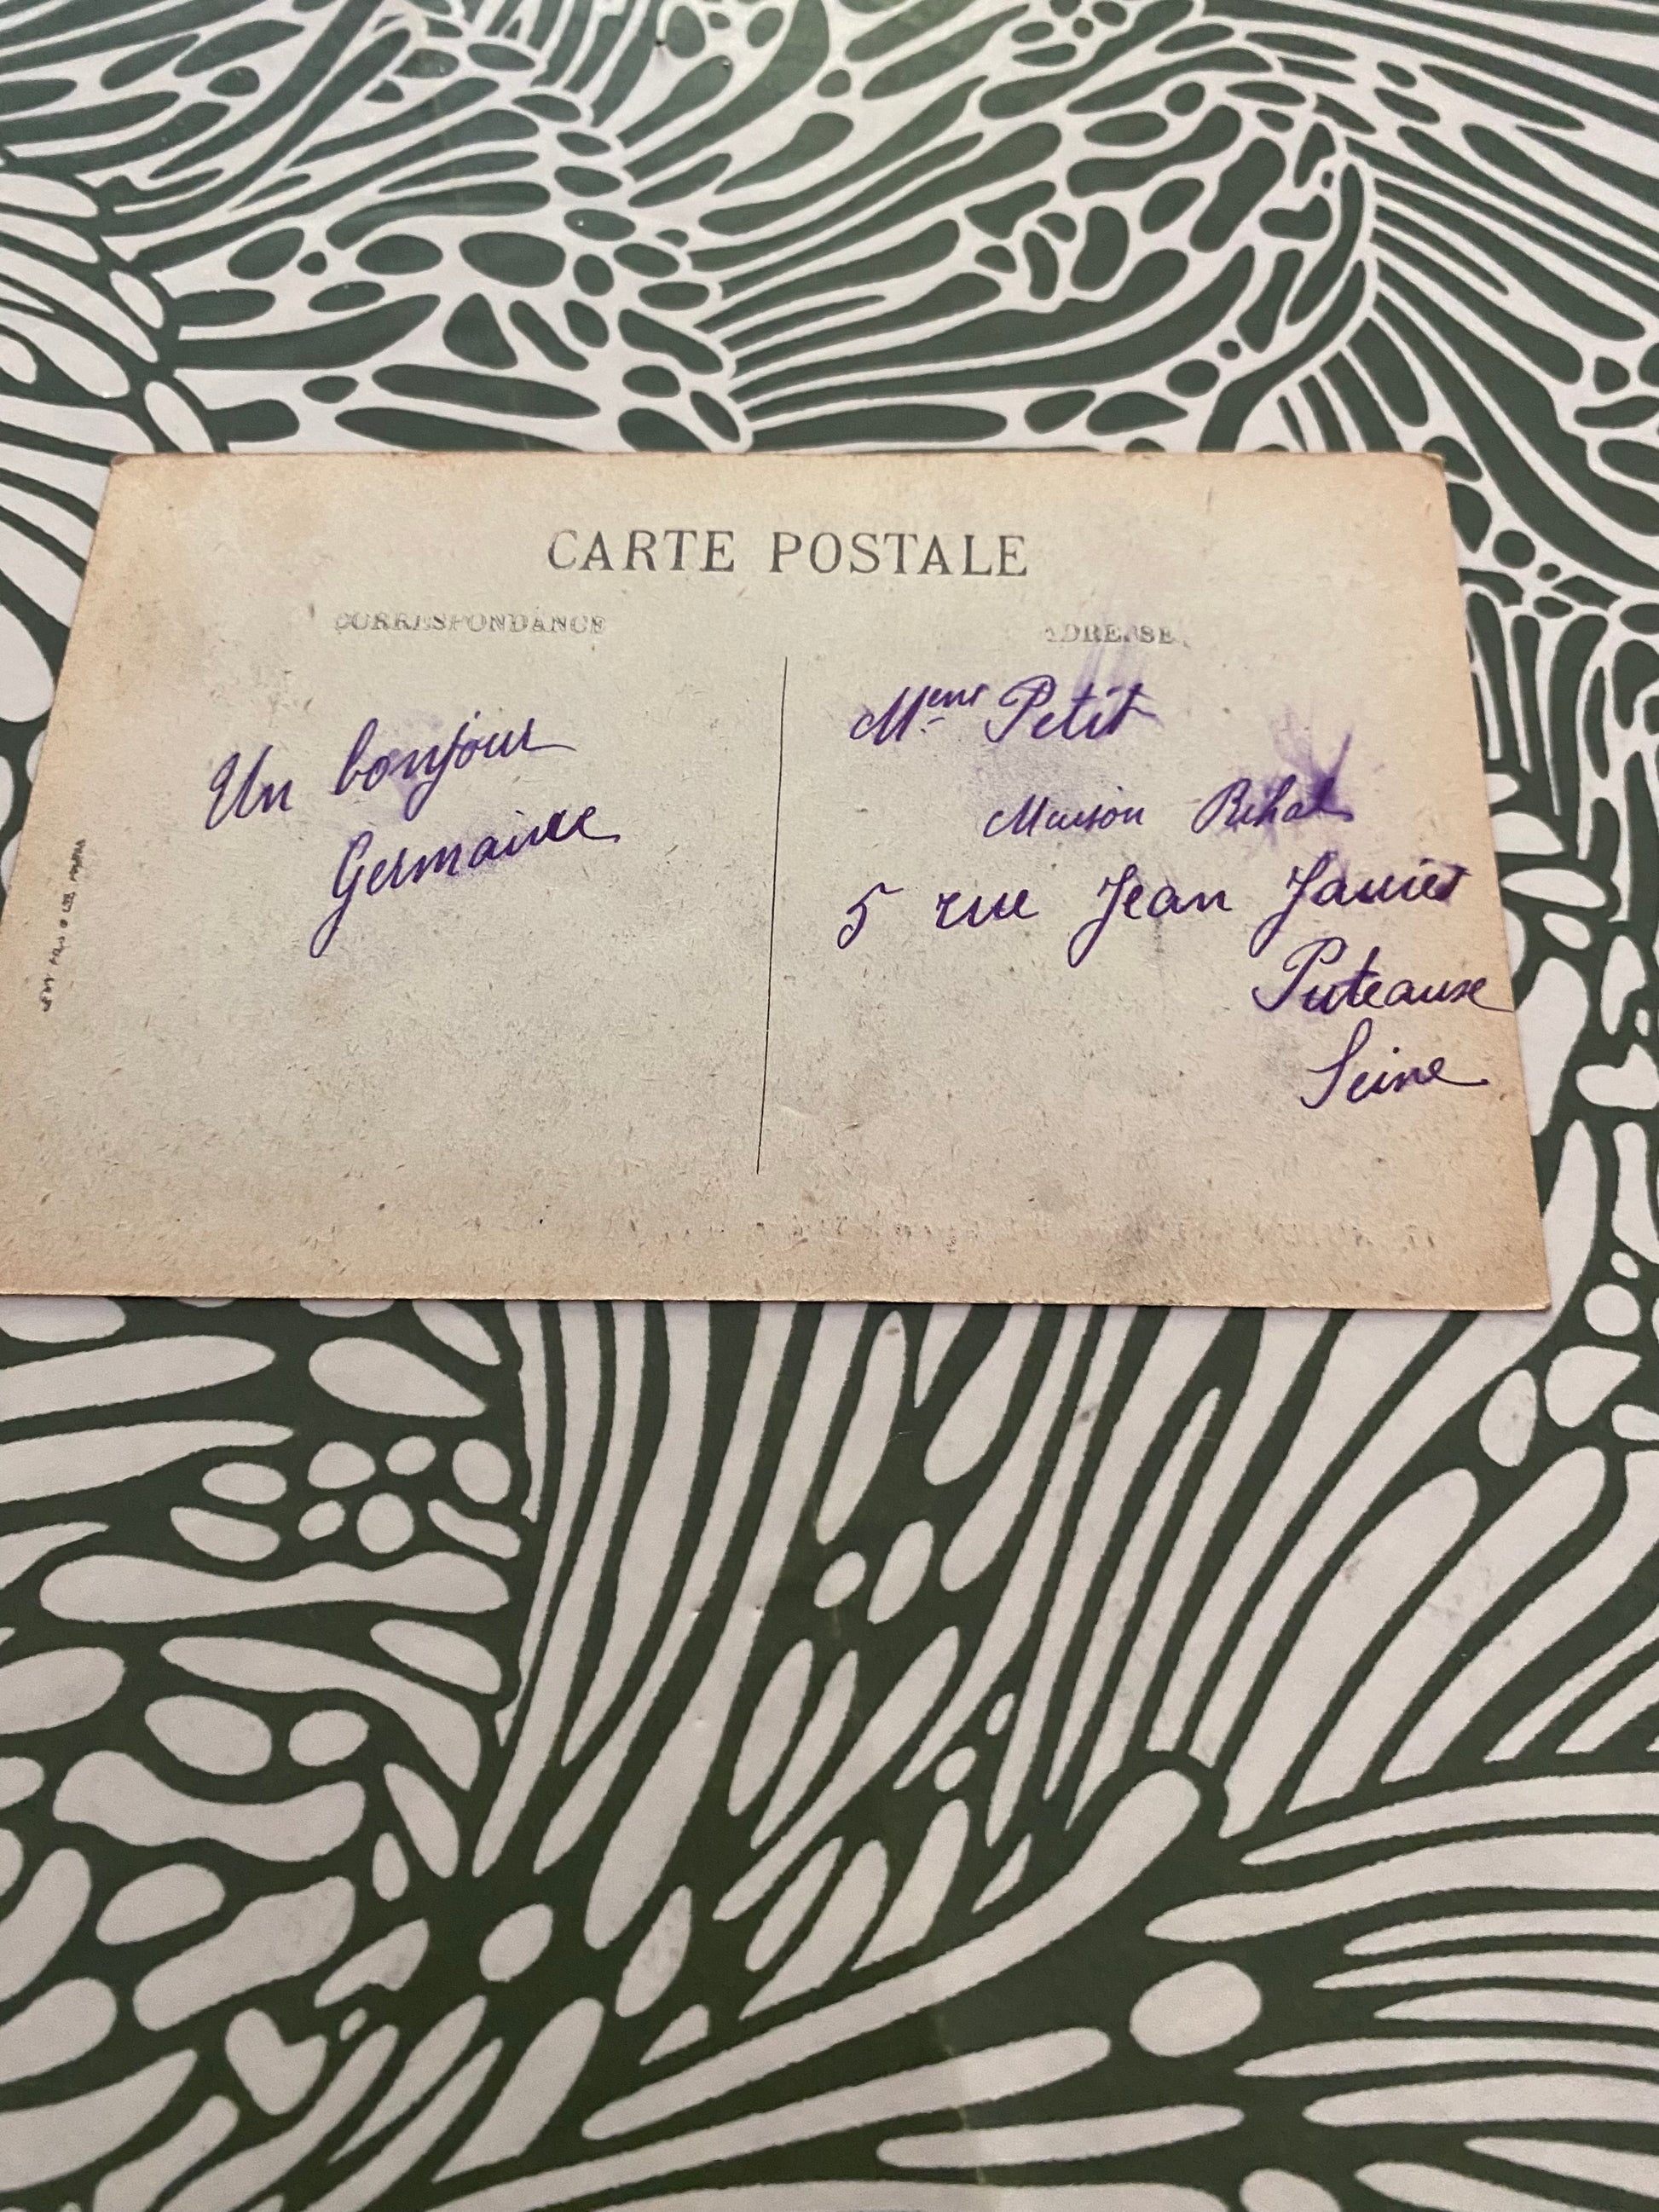 CARTE POSTALE
CORRESPONDANCE
ADRESSE
Un bonjour
Germaine
Mme Petit
Maison
5 rue Jean
Puteause
Seine